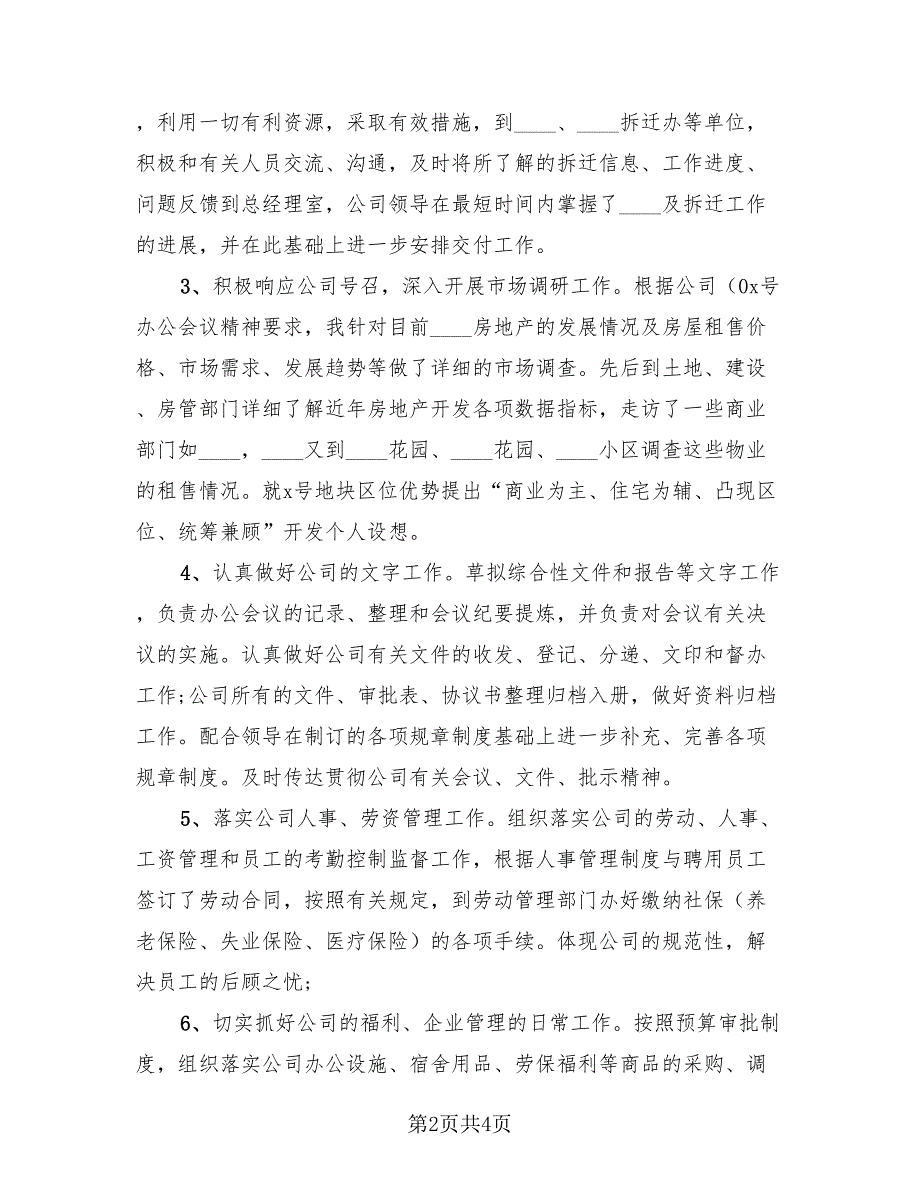 ，利用一切有利资源，采取有效措施，到____、____拆迁办等单位，
积极和有关人员交流、沟通，及时将所了解的拆迁信息、工作进度、
问题反馈到总经理室，公司领导在最短时间内掌握了____及拆迁工作
的进展，并在此基础上进一步安排交付工作。
3、积极响应公司号召，深入开展市场调研工作。根据公司（0x号
办公会议精神要求，我针对目前____房地产的发展情况及房屋租售价
格、市场需求、发展趋势等做了详细的市场调查。先后到土地、建设
、房管部门详细了解近年房地产开发各项数据指标，走访了一些商业
部门如____，____又到____花园、____花园、____小区调查这些物业
的租售情况。就x号地块区位优势提出“商业为主、住宅为辅、凸现区
位、统筹兼顾”开发个人设想。
4、认真做好公司的文字工作。草拟综合性文件和报告等文字工作
，负责办公会议的记录、整理和会议纪要提炼，并负责对会议有关决
议的实施。认真做好公司有关文件的收发、登记、分递、文印和督办
工作;公司所有的文件、审批表、协议书整理归档入册，做好资料归档
工作。配合领导在制订的各项规章制度基础上进一步补充、完善各项
规章制度。及时传达贯彻公司有关会议、文件、批示精神。
5、落实公司人事、劳资管理工作。组织落实公司的劳动、人事、
工资管理和员工的考勤控制监督工作，根据人事管理制度与聘用员工
签订了劳动合同，按照有关规定，到劳动管理部门办好缴纳社保（养
老保险、失业保险、医疗保险）的各项手续。体现公司的规范性，解
决员工的后顾之忧;
6、切实抓好公司的福利、企业管理的日常工作。按照预算审批制
度，组织落实公司办公设施、宿舍用品、劳保福利等商品的采购、调
第2页共4页